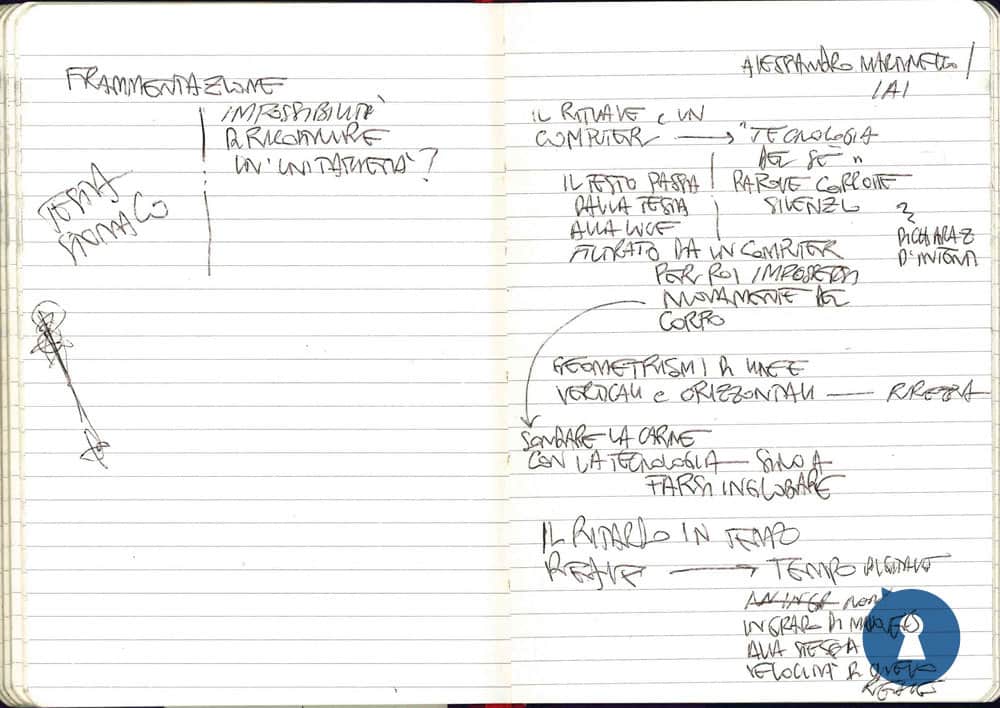 FRAMMENTAZIONE
IMPOSSIBILITÀ
DI RICOSTRUIRE
UN'UNITARIETÀ?
TESTA
STOMACO
ALESSANDRO MARTINETTO /
IAI
IL RITUALE È UN
COMPUTER → "TECNOLOGIA
DEL SÉ"
IL TESTO PASSA
DALLA TESTA
ALLA LUCE
FILTRATO DA UN COMPUTER
PER POI IMPOSSESS
NUOVAMENTE DEL
CORPO
PAROLE CORROTTE
SILENZIO
?
DICHIARAZ
D'INTENTI
GEOMETRISMI DI LINEE
VERTICALI e ORIZZONTALI —
SONDARE LA CARNE
CON LA TECNOLOGIA — SINO A
FARSI INGLOBARE
IL RITARDO IN TEMPO
REALE → TEMPO DIGITALE
NON
IN GRADO DI
ALLA STESSA
VELOCITÀ DI QUELLO
REALE